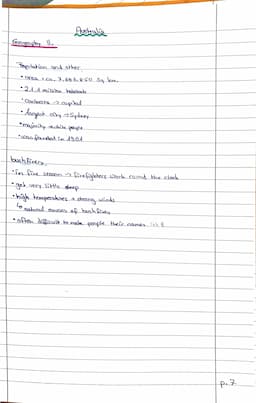 Australia
Geography
Population and other
• area: ca. 7.693.850 Sq km
• 21.1 million
• Canberra → capital
• largest city → Sydney
• majority white people
• was founded in 1901
bushfires
• fire season → firefighters work round the clock
• get very little sleep
• high temperatures + strong winds
↳ natural causes of bushfires
• often difficult to make people their names
p. 7